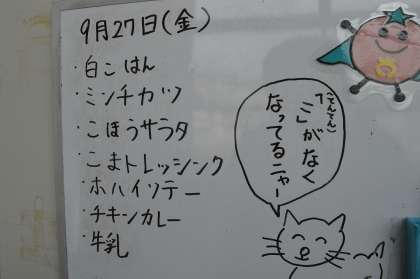 9月27日(金)
・白こはん
・ミンチカツ
・こほうサラタ
・こまトレッシンク
・ホハイソテー
・チキンカレー
・牛乳
(てんてん)
「〃」がなく
なってるニャー